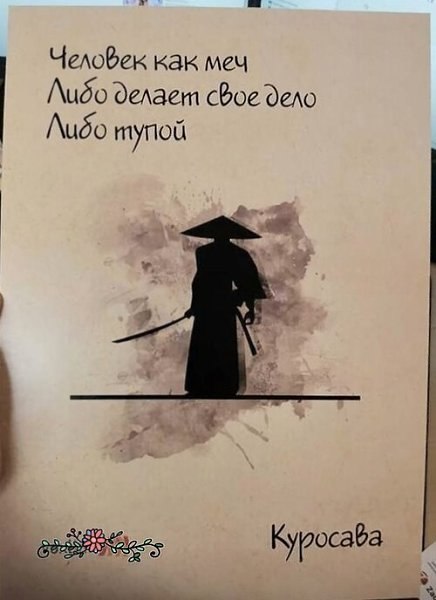 Человек как меч
Либо делает свое дело
Либо тупой
Куросава